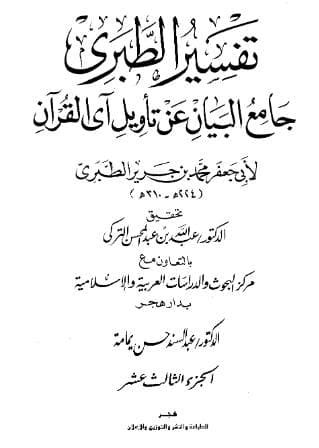 تفسير الطبرى
جامع البيان عن تأويل آى القرآن
لأبى جعفر محمد بن جرير الطبرى
(٢٢٤هـ - ٣١٠هـ)
تحقيق
الدكتور/ عبد الله بن عبد المحسن التركى
بالتعاون مع
مركز البحوث والدراسات العربية والإسلامية
بدار هجر
الدكتور/ عبد السند حسن يمامة
الجزء الثالث عشر
هجر
للطباعة والنشر والتوزيع والإعلان